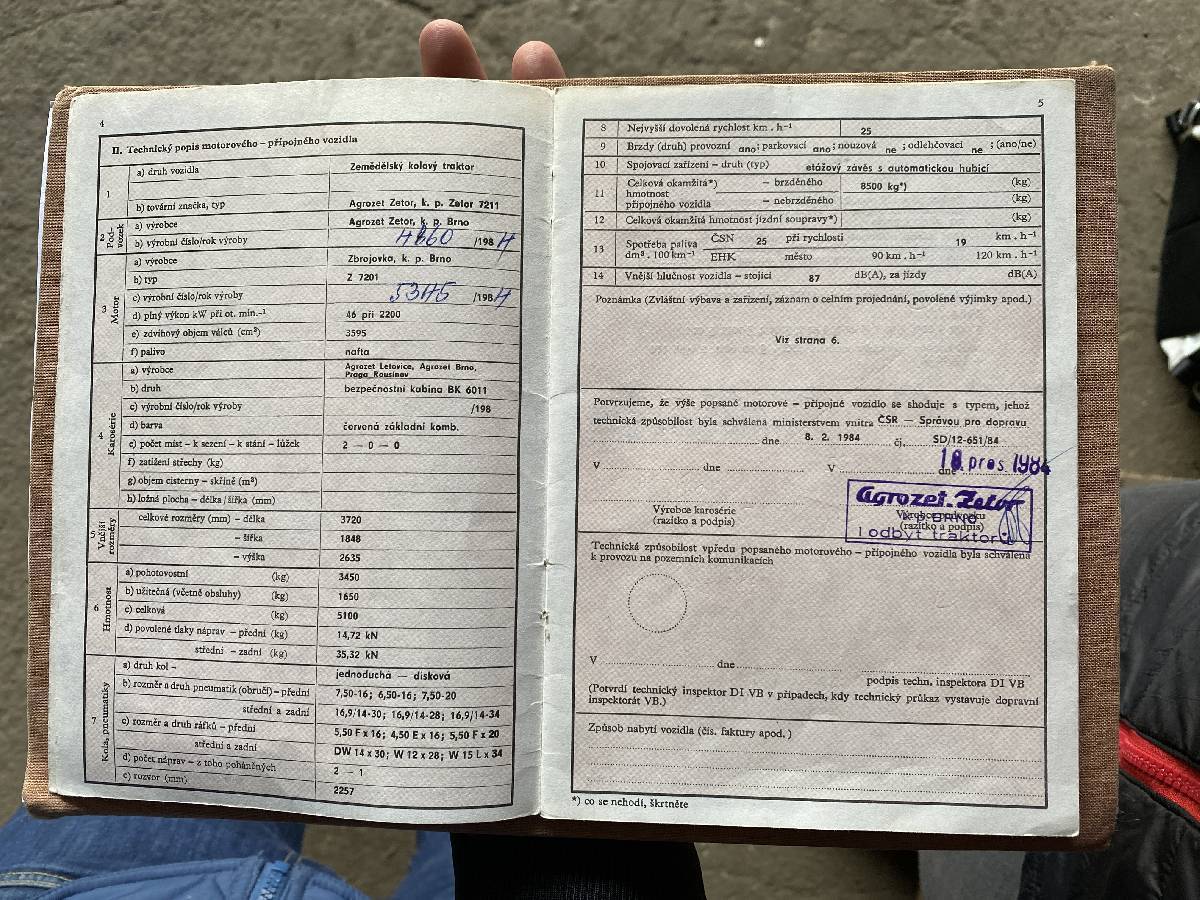 4
II. Technický popis motorového – přípojného vozidla
1 a) druh vozidla Zemědělský kolový traktor
b) tovární značka, typ Agrozet Zetor, k. p. Zetor 7211
2 Pod-vozek a) výrobce Agrozet Zetor, k. p. Brno
b) výrobní číslo/rok výroby /198 4
3 Motor a) výrobce Zbrojovka, k. p. Brno
b) typ Z 7201
c) výrobní číslo/rok výroby 5345 /198 4
d) plný výkon kW při ot. min.⁻¹ 46 při 2200
e) zdvihový objem válců (cm³) 3595
f) palivo nafta
4 Karosérie a) výrobce Agrozet Letovice, Agrozet Brno,
Praga Rousínov
b) druh bezpečnostní kabina BK 6011
c) výrobní číslo/rok výroby /198
d) barva červená základní komb.
e) počet míst – k sezení – k stání – lůžek 2 – 0 – 0
f) zatížení střechy (kg)
g) objem cisterny – skříně (m³)
h) ložná plocha – délka/šířka (mm)
5 Vnější rozměry celkové rozměry (mm) – délka 3720
– šířka 1848
– výška 2635
6 Hmotnost a) pohotovostní (kg) 3450
b) užitečná (včetně obsluhy) (kg) 1650
c) celková (kg) 5100
d) povolené tlaky náprav – přední (kg) 14,72 kN
střední – zadní (kg) 35,32 kN
7 Kola, pneumatiky a) druh kol – jednoduchá — disková
b) rozměr a druh pneumatik (obručí) – přední 7,50-16; 6,50-16; 7,50-20
střední a zadní 16,9/14-30; 16,9/14-28; 16,9/14-34
c) rozměr a druh ráfků – přední 5,50 F x 16; 4,50 E x 16; 5,50 F x 20
střední a zadní DW 14 x 30; W 12 x 28; W 15 L x 34
d) počet náprav – z toho poháněných 2 – 1
e) rozvor (mm) 2257
5
8 Nejvyšší dovolená rychlost km . h⁻¹ 25
9 Brzdy (druh) provozní ano; parkovací ano; nouzová ne ; odlehčovací ne ; (ano/ne)
10 Spojovací zařízení – druh (typ) etážový závěs s automatickou hubicí
11 Celková okamžitá*) – brzděného 8500 kg*) (kg)
hmotnost
přípojného vozidla – nebrzděného (kg)
12 Celková okamžitá hmotnost jízdní soupravy*) (kg)
13 Spotřeba paliva ČSN 25 při rychlosti 19 km . h⁻¹
dm³ . 100 km⁻¹ EHK město 90 km . h⁻¹ 120 km . h⁻¹
14 Vnější hlučnost vozidla – stojící 87 dB(A), za jízdy dB(A)
Poznámka (Zvláštní výbava a zařízení, záznam o celním projednání, povolené výjimky apod.)
Viz strana 6.
Potvrzujeme, že výše popsané motorové – přípojné vozidlo se shoduje s typem, jehož
technická způsobilost byla schválena ministerstvem vnitra ČSR — Správou pro dopravu
dne 8. 2. 1984 čj. SD/12-651/84
V dne V dne 18. pros 1984
Agrozet-Zetor
k. p. BRNO
odbyt traktorů
Výrobce karosérie Výrobce podvozku
(razítko a podpis) (razítko a podpis)
Technická způsobilost vpředu popsaného motorového – přípojného vozidla byla schválena
k provozu na pozemních komunikacích
V dne
podpis techn. inspektora DI VB
(Potvrdí technický inspektor DI VB v případech, kdy technický průkaz vystavuje dopravní
inspektorát VB.)
Způsob nabytí vozidla (čís. faktury apod.)
*) co se nehodí, škrtněte